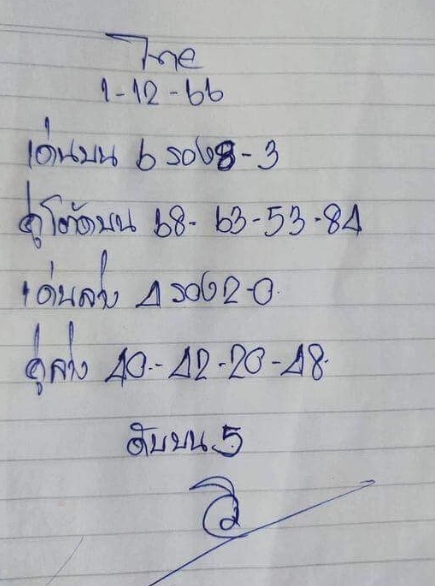 ไทย
1-12-66
เด่นบน 6 รอง 8-3
คู่โต๊ดบน 68-63-53-84
เด่นล่าง 4 รอง 2-0
คู่ล่าง 40-42-20-48
ดับบน 5